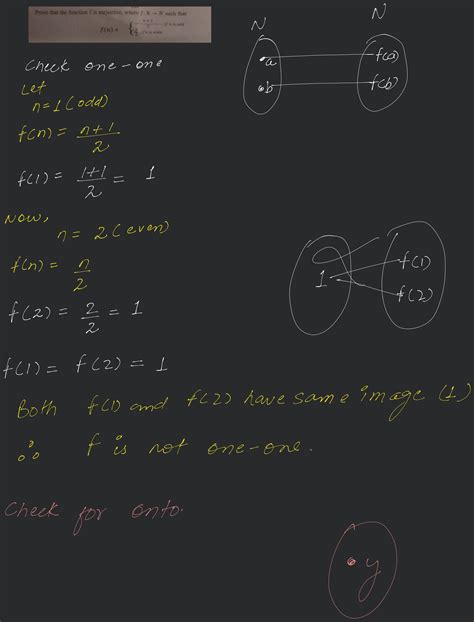 Prove that the function f is surjective, where f: N → N such that
f(n) = { n+1/2, if n is odd
n/2, if n is even
N N
Check one-one
Let
n=1 (odd)
f(n) = n+1/2
f(1) = 1+1/2 = 1
Now,
n = 2 (even)
f(n) = n/2
f(2) = 2/2 = 1
f(1) = f(2) = 1
Both f(1) and f(2) have same image (1)
∴ f is not one-one.
Check for onto.
a f(a)
b f(b)
1 f(1)
f(2)
y